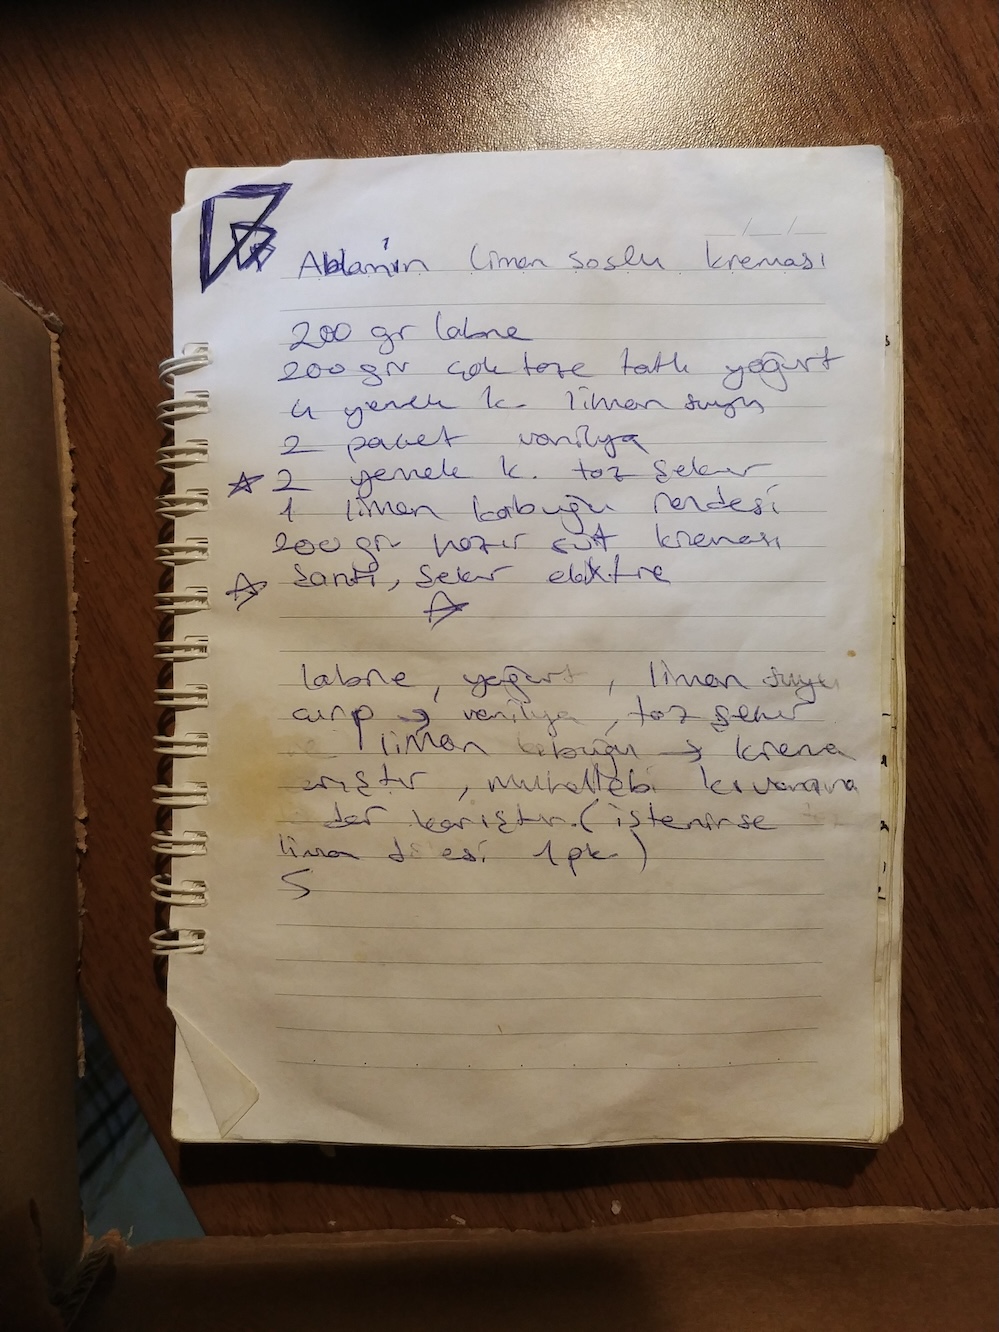 Ablamın limon soslu kreması
200 gr labne
200 gr çok taze tatlı yoğurt
4 yemek k. limon suyu
2 paket vanilya
2 yemek k. toz şeker
1 limon kabuğu rendesi
200 gr hazır süt kreması
Santi, şeker ekstre
labne, yoğurt, limon suyu
çırp → vanilya, toz şeker
limon kabuğu → krema
, muhallebi kıvamına
karıştır. (istenirse
limon 1 pk.)